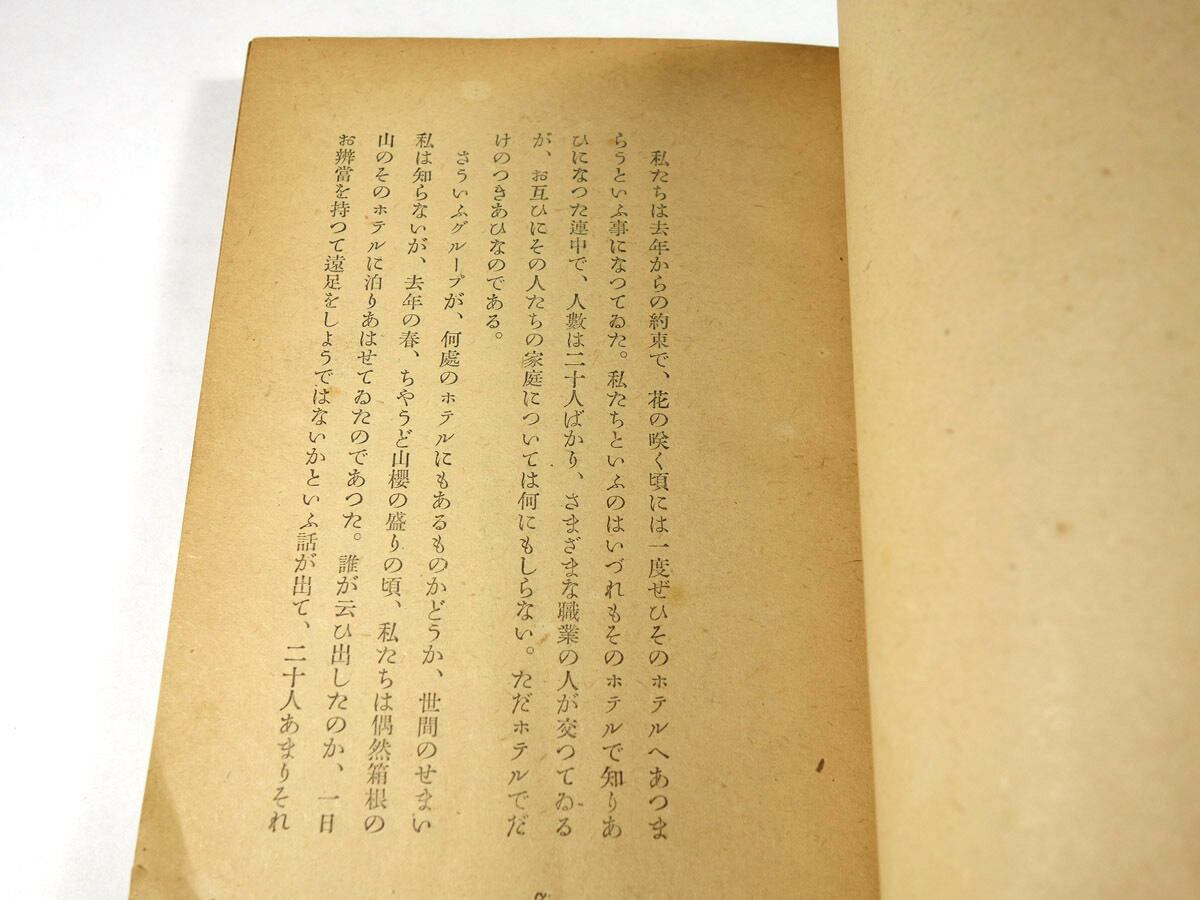 私たちは去年からの約束で、花の咲く頃には一度ぜひそのホテルへあつま
らうといふ事になつてゐた。私たちといふのはいづれもそのホテルで知りあ
ひになつた連中で、人數は二十人ばかり、さまざまな職業の人が交つてゐる
が、お互ひにその人たちの家庭については何にもしらない。ただホテルでだ
けのつきあひなのである。
さういふグループが、何處のホテルにもあるものかどうか、世間のせまい
私は知らないが、去年の春、ちやうど山櫻の盛りの頃、私たちは偶然箱根の
山のそのホテルに泊りあはせてゐたのであつた。誰が云ひ出したのか、一日
お辨當を持つて遠足をしようではないかといふ話が出て、二十人あまりそれ